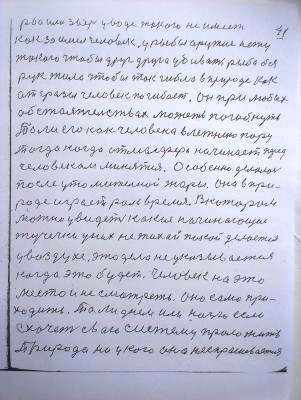 рба или зверь у воде такого не имеет
как за имел человек, у рыбы оружие нету
такого чтобы друг друга убивать рыба без
рук жила чтобы так гибла в природе как
от грозы человек погибает. Он при любых
обстаятельствах может погибнуть
То ли его как человека в летнюю пору
тогда когда атмасфера начинает перед
человеком минятия. Особенно делаюч
после утомительной жары. Она в при-
роде играет рол время. В котором
можно увидеть какие начинающие
тучечки у них не тихай такой делается
у воздухе, это дело не указывается
когда это будет. Человек на это
место и не смотреть. Оно само при-
ходить. То ли днем или ночю если
схочет сваю систему праложить
Природа ни у кого она не спрашивается